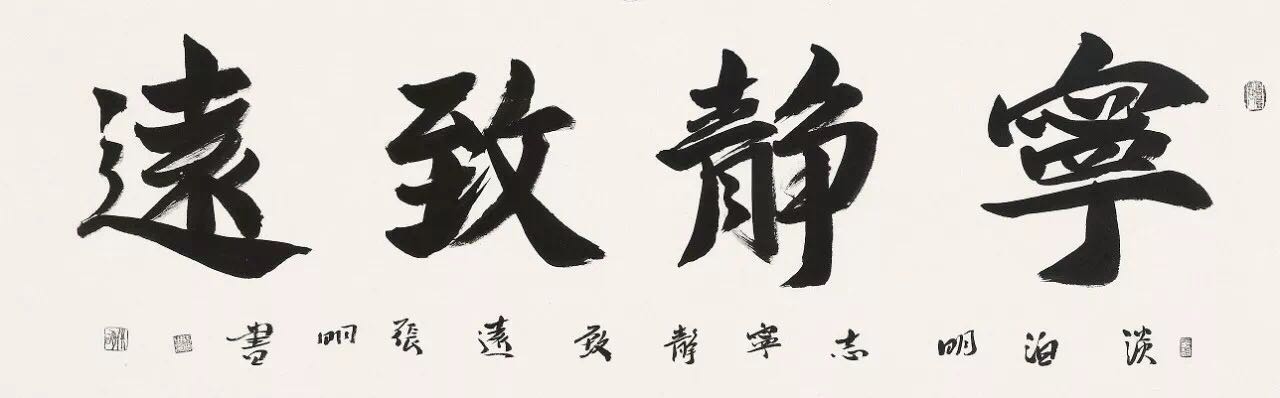 寧靜致遠
淡泊明志寧靜致遠張明書